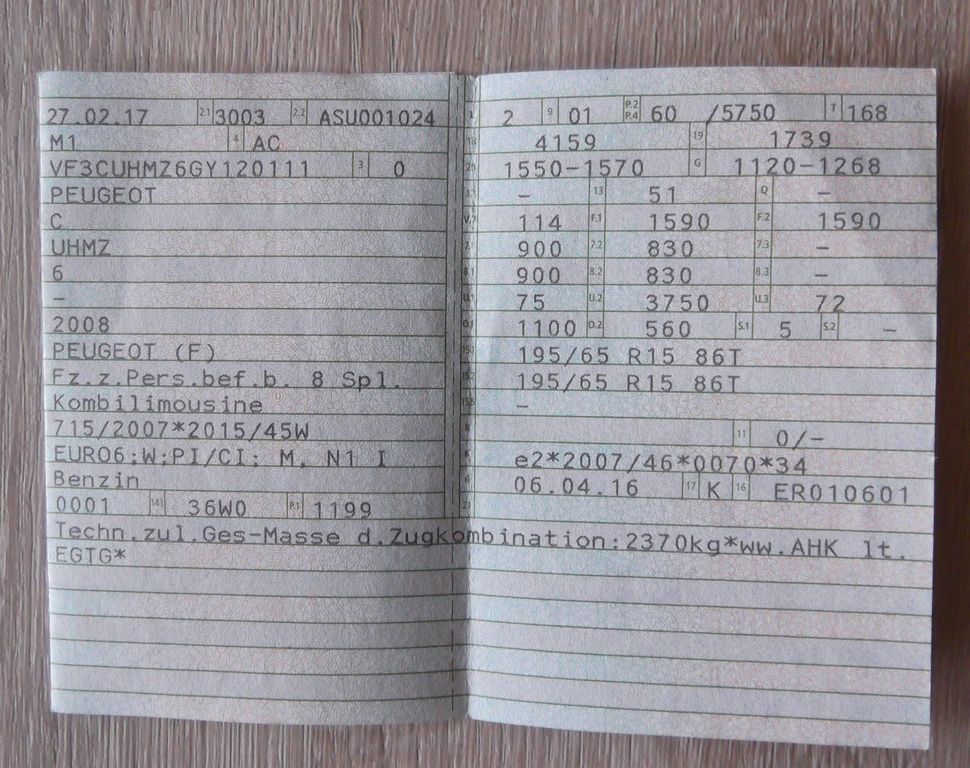 27.02.17 2.1 3003 2.2 ASU001024
M1 4 AC
VF3CUHMZ6GY120111 3 0
PEUGEOT
C
UHMZ
6
–
2008
PEUGEOT (F)
Fz.z.Pers.bef.b. 8 Spl.
Kombilimousine
715/2007*2015/45W
EURO6;W;PI/CI; M, N1 I
Benzin
0001 14.1 36W0 P.1 1199
2 9 01 P.2 P.4 60 /5750 T 168
18 4159 19 1739
20 1550–1570 G 1120–1268
– 13 51 Q –
V.7 114 F.1 1590 F.2 1590
7.1 900 7.2 830 7.3 –
8.1 900 8.2 830 8.3 –
U.1 75 U.2 3750 U.3 72
O.1 1100 O.2 560 S.1 5 S.2 –
195/65 R15 86T
195/65 R15 86T
–
11 0/–
e2*2007/46*0070*34
6 06.04.16 17 K 16 ER010601
Techn.zul.Ges–Masse d.Zugkombination:2370kg*ww.AHK lt.
EGTG*